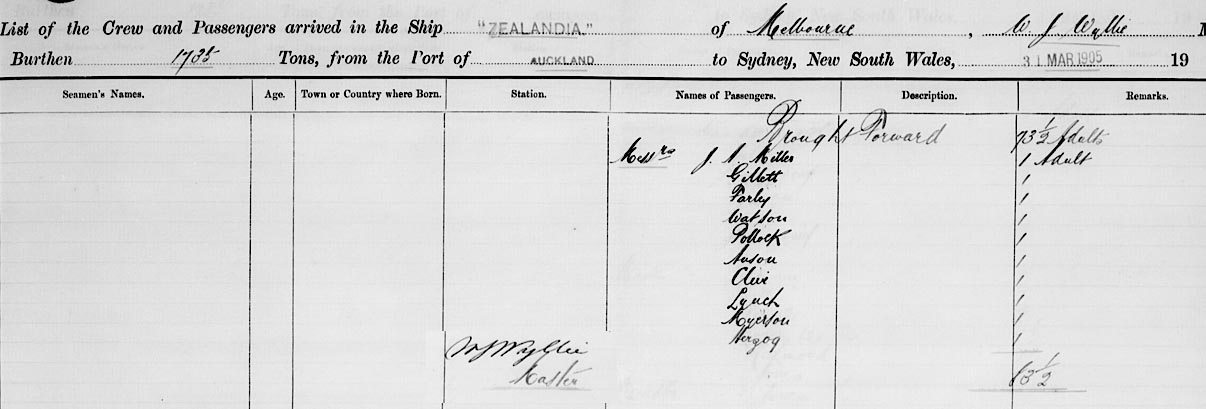 List of the Crew and Passengers arrived in the Ship "ZEALANDIA." of Melbourne, W. J. Wyllie M
Burthen Tons, from the Port of AUCKLAND to Sydney, New South Wales, 31 MAR 1905 19
Seamen's Names. Age. Town or Country where Born. Station. Names of Passengers. Description. Remarks.
Brought Forward 73½ Adults
Messrs J. A. Miller 1 Adult
Gillett 1
Farley 1
Watson 1
Pollock 1
Anson 1
Clive 1
Lynch 1
Myerson 1
Herzog 1
W J Wyllie
Master 83½